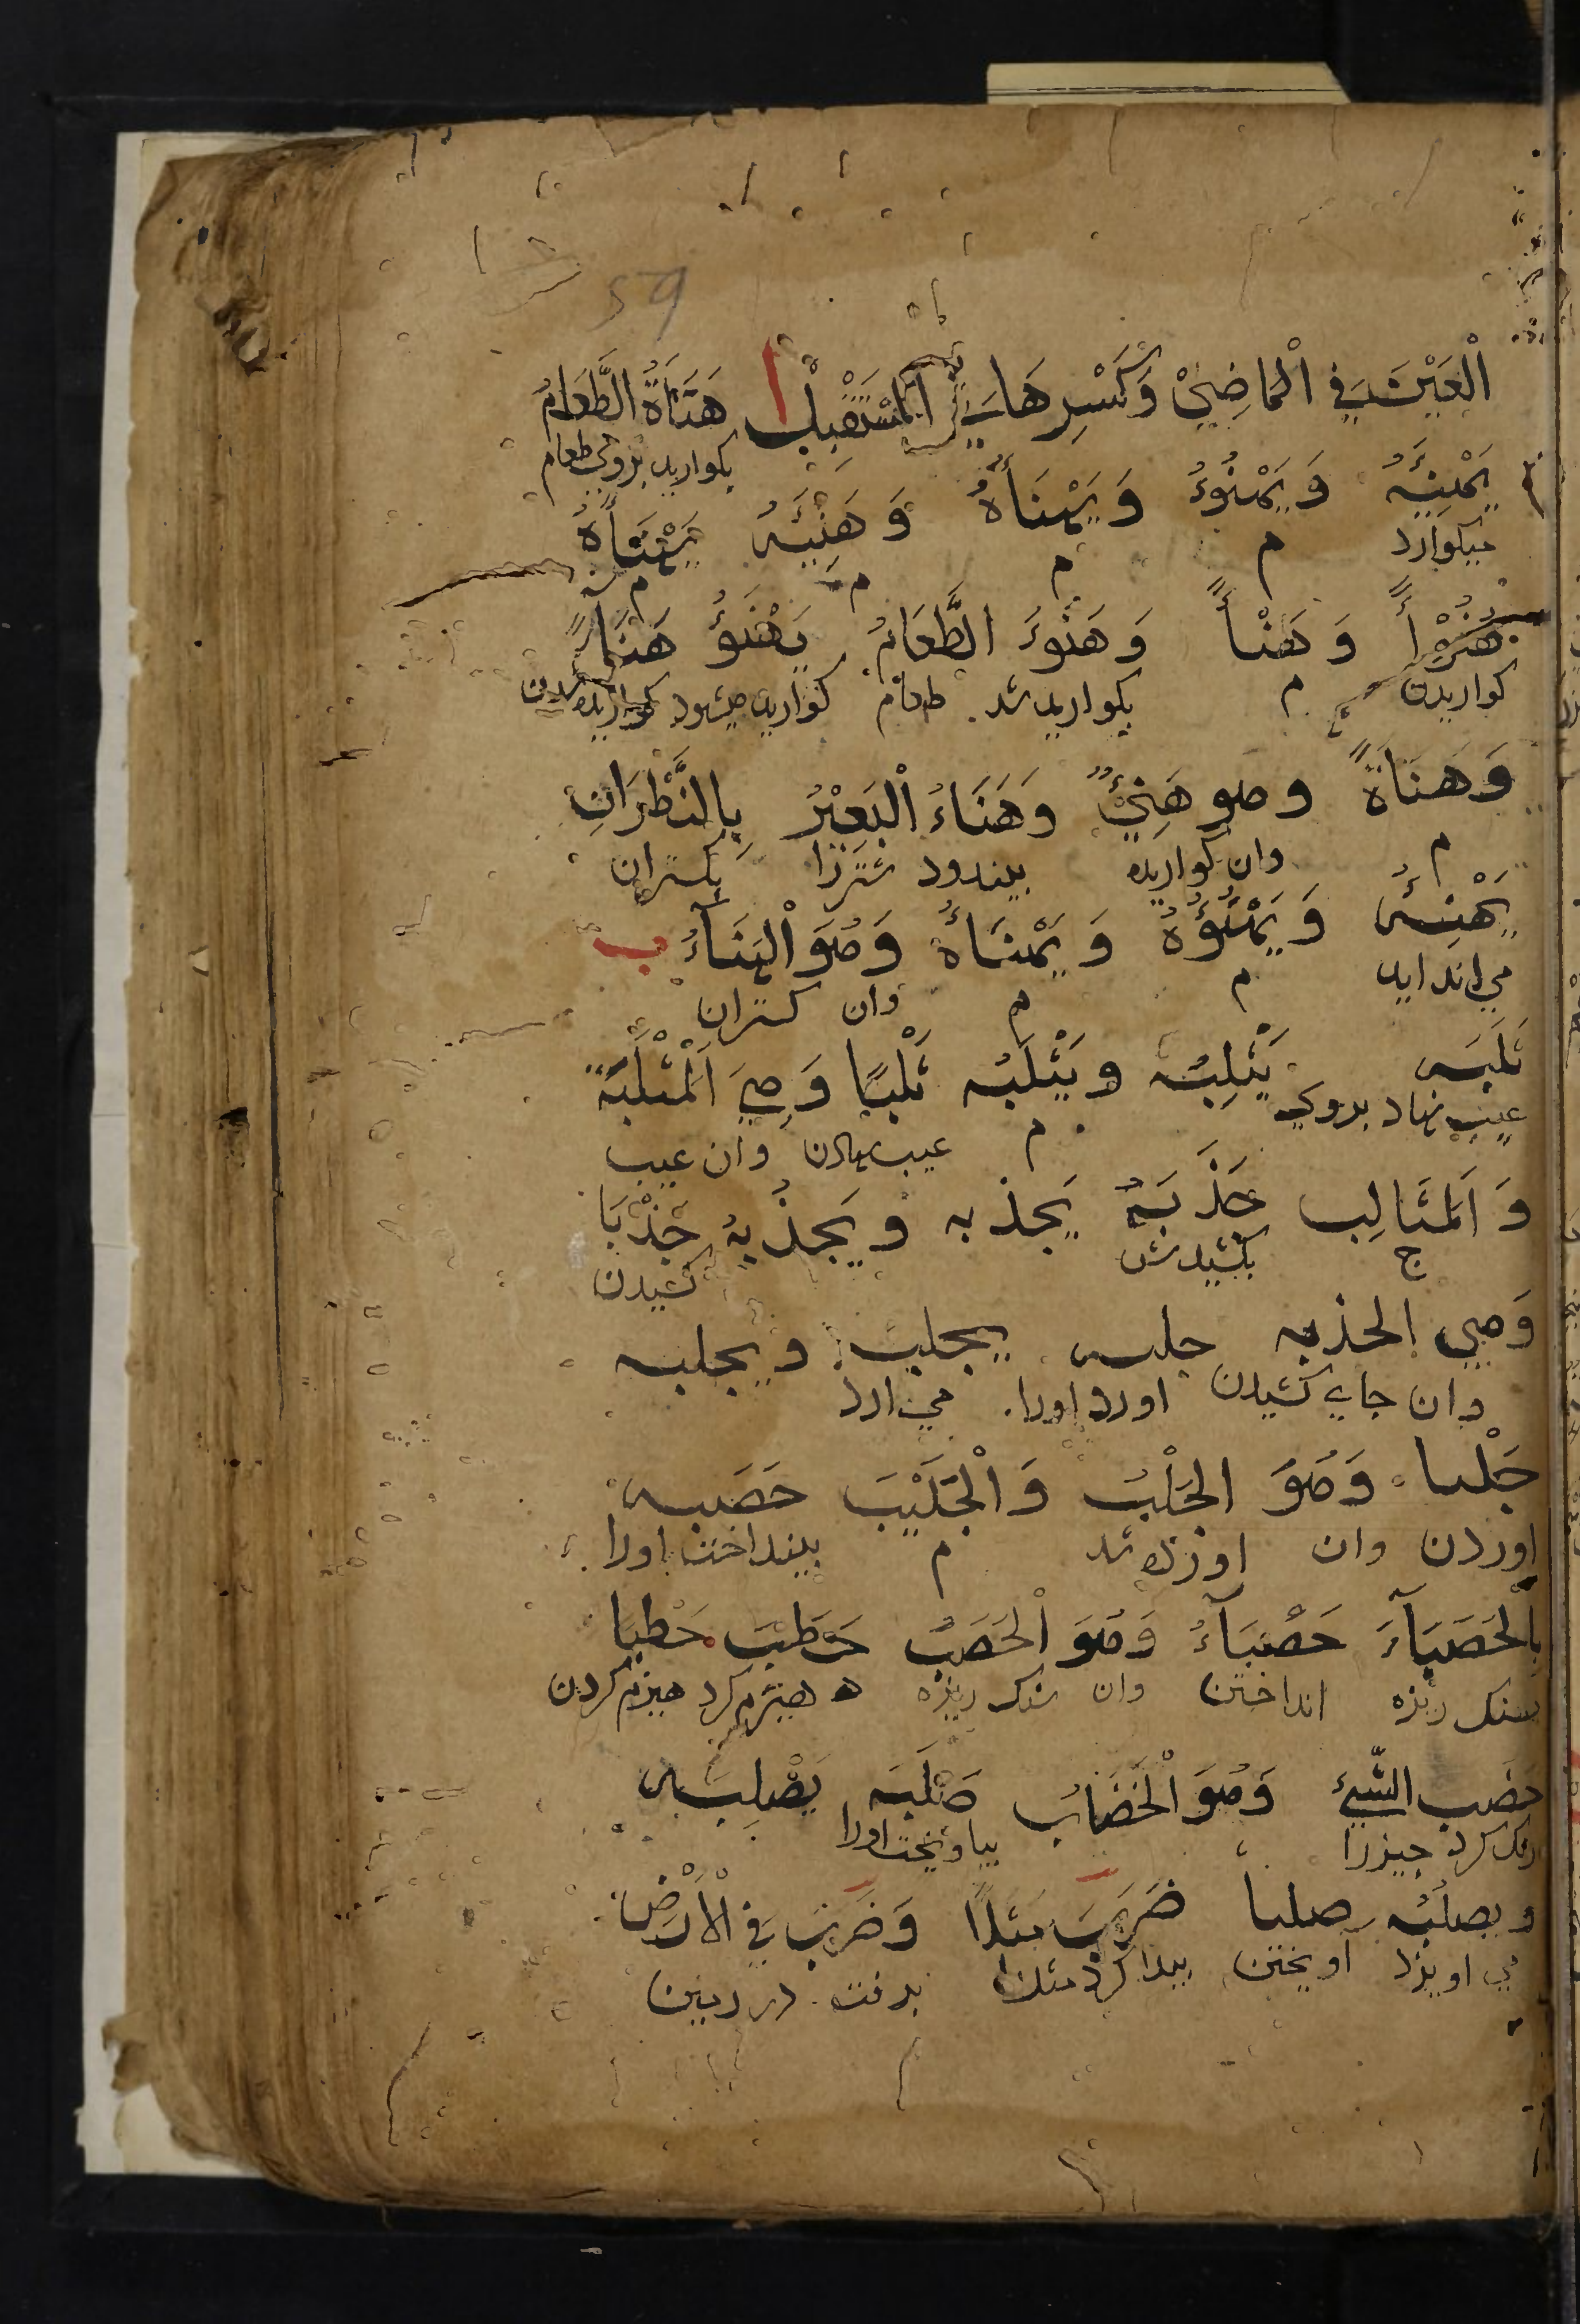 59
الْعَيْنِ فِي الْمَاضِيْ وَكَسْرِهَا فِي الْمُسْتَقْبِلْ ا هَنَأَهُ الطَّعَامُ
بكواريد بروي طعام
يَهْنِئُهُ وَيَهْنُوءُهُ وَيَهْنَأُهُ وَهَنِئَهُ يَهْنَأُهُ
ميكوارد م م م م
هُنُوْأً وَهَنْأً وَهَنُوءَ الطَّعَامُ يَهْنَؤُ هَنَاءً
كواريدن م بكواريد شد طعام كواريد ميشود كواريده شدن
وَهَنَاةً وهو هَنِيْءٌ وَهَنَاءُ الْبَعِيْرُ بِالْقَطْرَانِ
م وان كواريده بيندود شتررا بكتران
يَهْنِئُهُ وَيَهْنُؤُهُ وَيَهْنَأُهُ وَهُوَ الْهِنَاءُ ب
مي اندايد م م وان كتران
ثَلَبَه يَثْلِبُه ويَثْلَبُه ثَلْبًا وَهِيَ الْمَثْلَبَة
عيب نهاد بروي م عيب نهادن وان عيب
وَ الْمَثَالِب جَذَبَهُ يَجذبه ويَجذُبهُ جَذْبَا
ج بكشيدش كشيدن
وَهِي الجذبه جلبه يجلبه ويجلبه
وان جاي كشيدن اورد اورا مي ارد
جَلْبا وَهُوَ الجَلْبُ وَالْجَلَيْبَ حَصَبه
اوردن وان اورده شد م بينداخت اورا
بِالْحَصَبَآءَ حَصْبَآءُ وَهُوَ الْحَصَبُ حَطَبَ حَطبَا
سنك ريزه انداختن وان سنك ريزه هيزم كرد هيزم كردن
خضب الشَّيْءَ وَهُوَ الْخَضَابُ صَلَبَه يَصْلِبُه
رنك كرد جيزرا بياويخت اورا
ويصلبُه صلبا ضَرَبَ مَثَلًا وَضَرَبَ فِي الْأَرْضِ
مي اويزد آويختن بيدا كرد مثل برفت در زمين